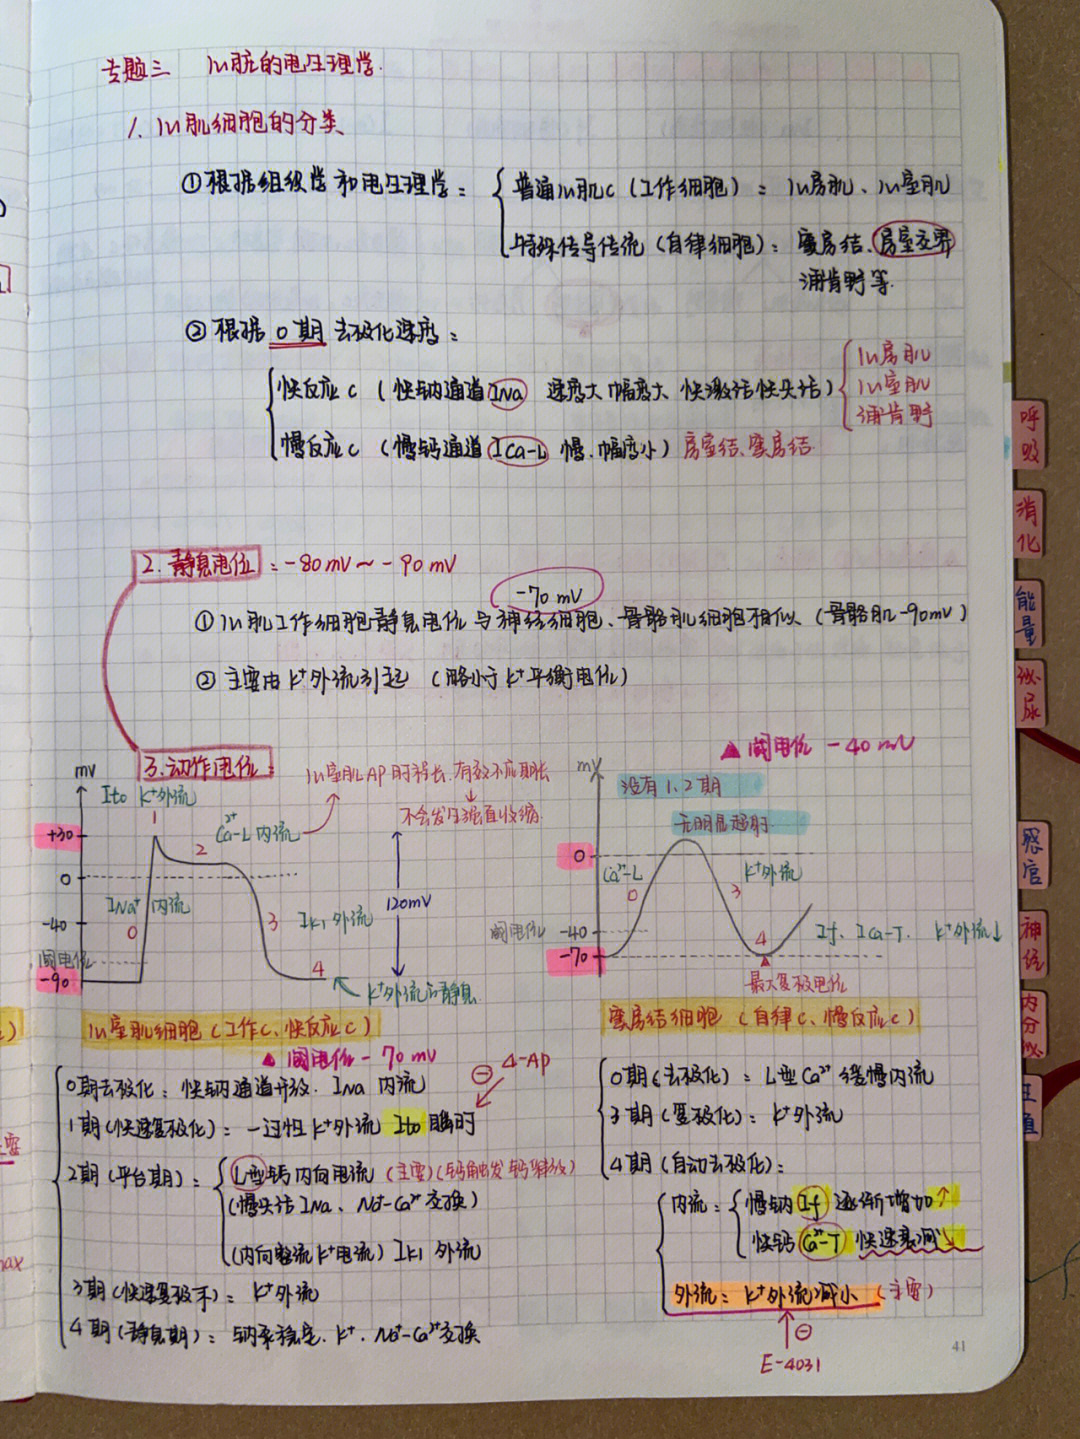 专题三 心脏的电生理学.
1. 心肌细胞的分类
①根据组织学和电生理学：
普通心肌C（工作细胞）：心房肌、心室肌
特殊传导传流（自律细胞）：窦房结、房室交界
浦肯野等.
②根据0期去极化速度：
快反应C（快钠通道INa 速度大 幅度大 快激活快失活）
心房肌
心室肌
浦肯野
慢反应C（慢钙通道ICa-L 慢.幅度小）房室结、窦房结
2. 静息电位：-80mV～-90mV
-70mV
①心肌工作细胞静息电位与神经细胞、骨骼肌细胞相似（骨骼肌-90mV）
②主要由K⁺外流引起（略小于K⁺平衡电位）
▲阈电位 -40mV
3. 动作电位：
心室肌AP时程长.有效不应期长
不会发生强直收缩.
mV
Ito K⁺外流
1
+30
Ca²⁺-L内流
2
0
INa⁺内流
0
-40
阈电位
-90
3
IK1外流
120mV
4
K⁺外流的静息
mV
没有1、2期
无明显超射
0
Ca²⁺-L
0
K⁺外流
3
阈电位
-40
-70
4
If、ICa-T. K⁺外流↓
最大复极电位
心室肌细胞（工作C、快反应C）
窦房结细胞（自律C、慢反应C）
▲阈电位-70mV
0期去极化：快钠通道开放. INa内流
⊖ 4-AP
1期(快速复极化)：一过性K⁺外流 Ito瞬时
2期(平台期)：
L型钙内向电流（主要）（钙触发钙释放）
(慢失活INa、Na⁺-Ca²⁺交换)
(内向整流K⁺电流) IK1外流
3期(快速复极末)：K⁺外流
4期(静息期)：钠泵稳定.K⁺.Na⁺-Ca²⁺交换
0期(去极化)：L型Ca²⁺缓慢内流
3期(复极化)：K⁺外流
4期(自动去极化)：
内流：
慢钠If逐渐增加↑
快钙Ca²⁺-T 快速衰减↓
外流：K⁺外流减小（主要）
⊖
E-4031
41
呼吸
消化
能量
泌尿
感官
神经
内分泌